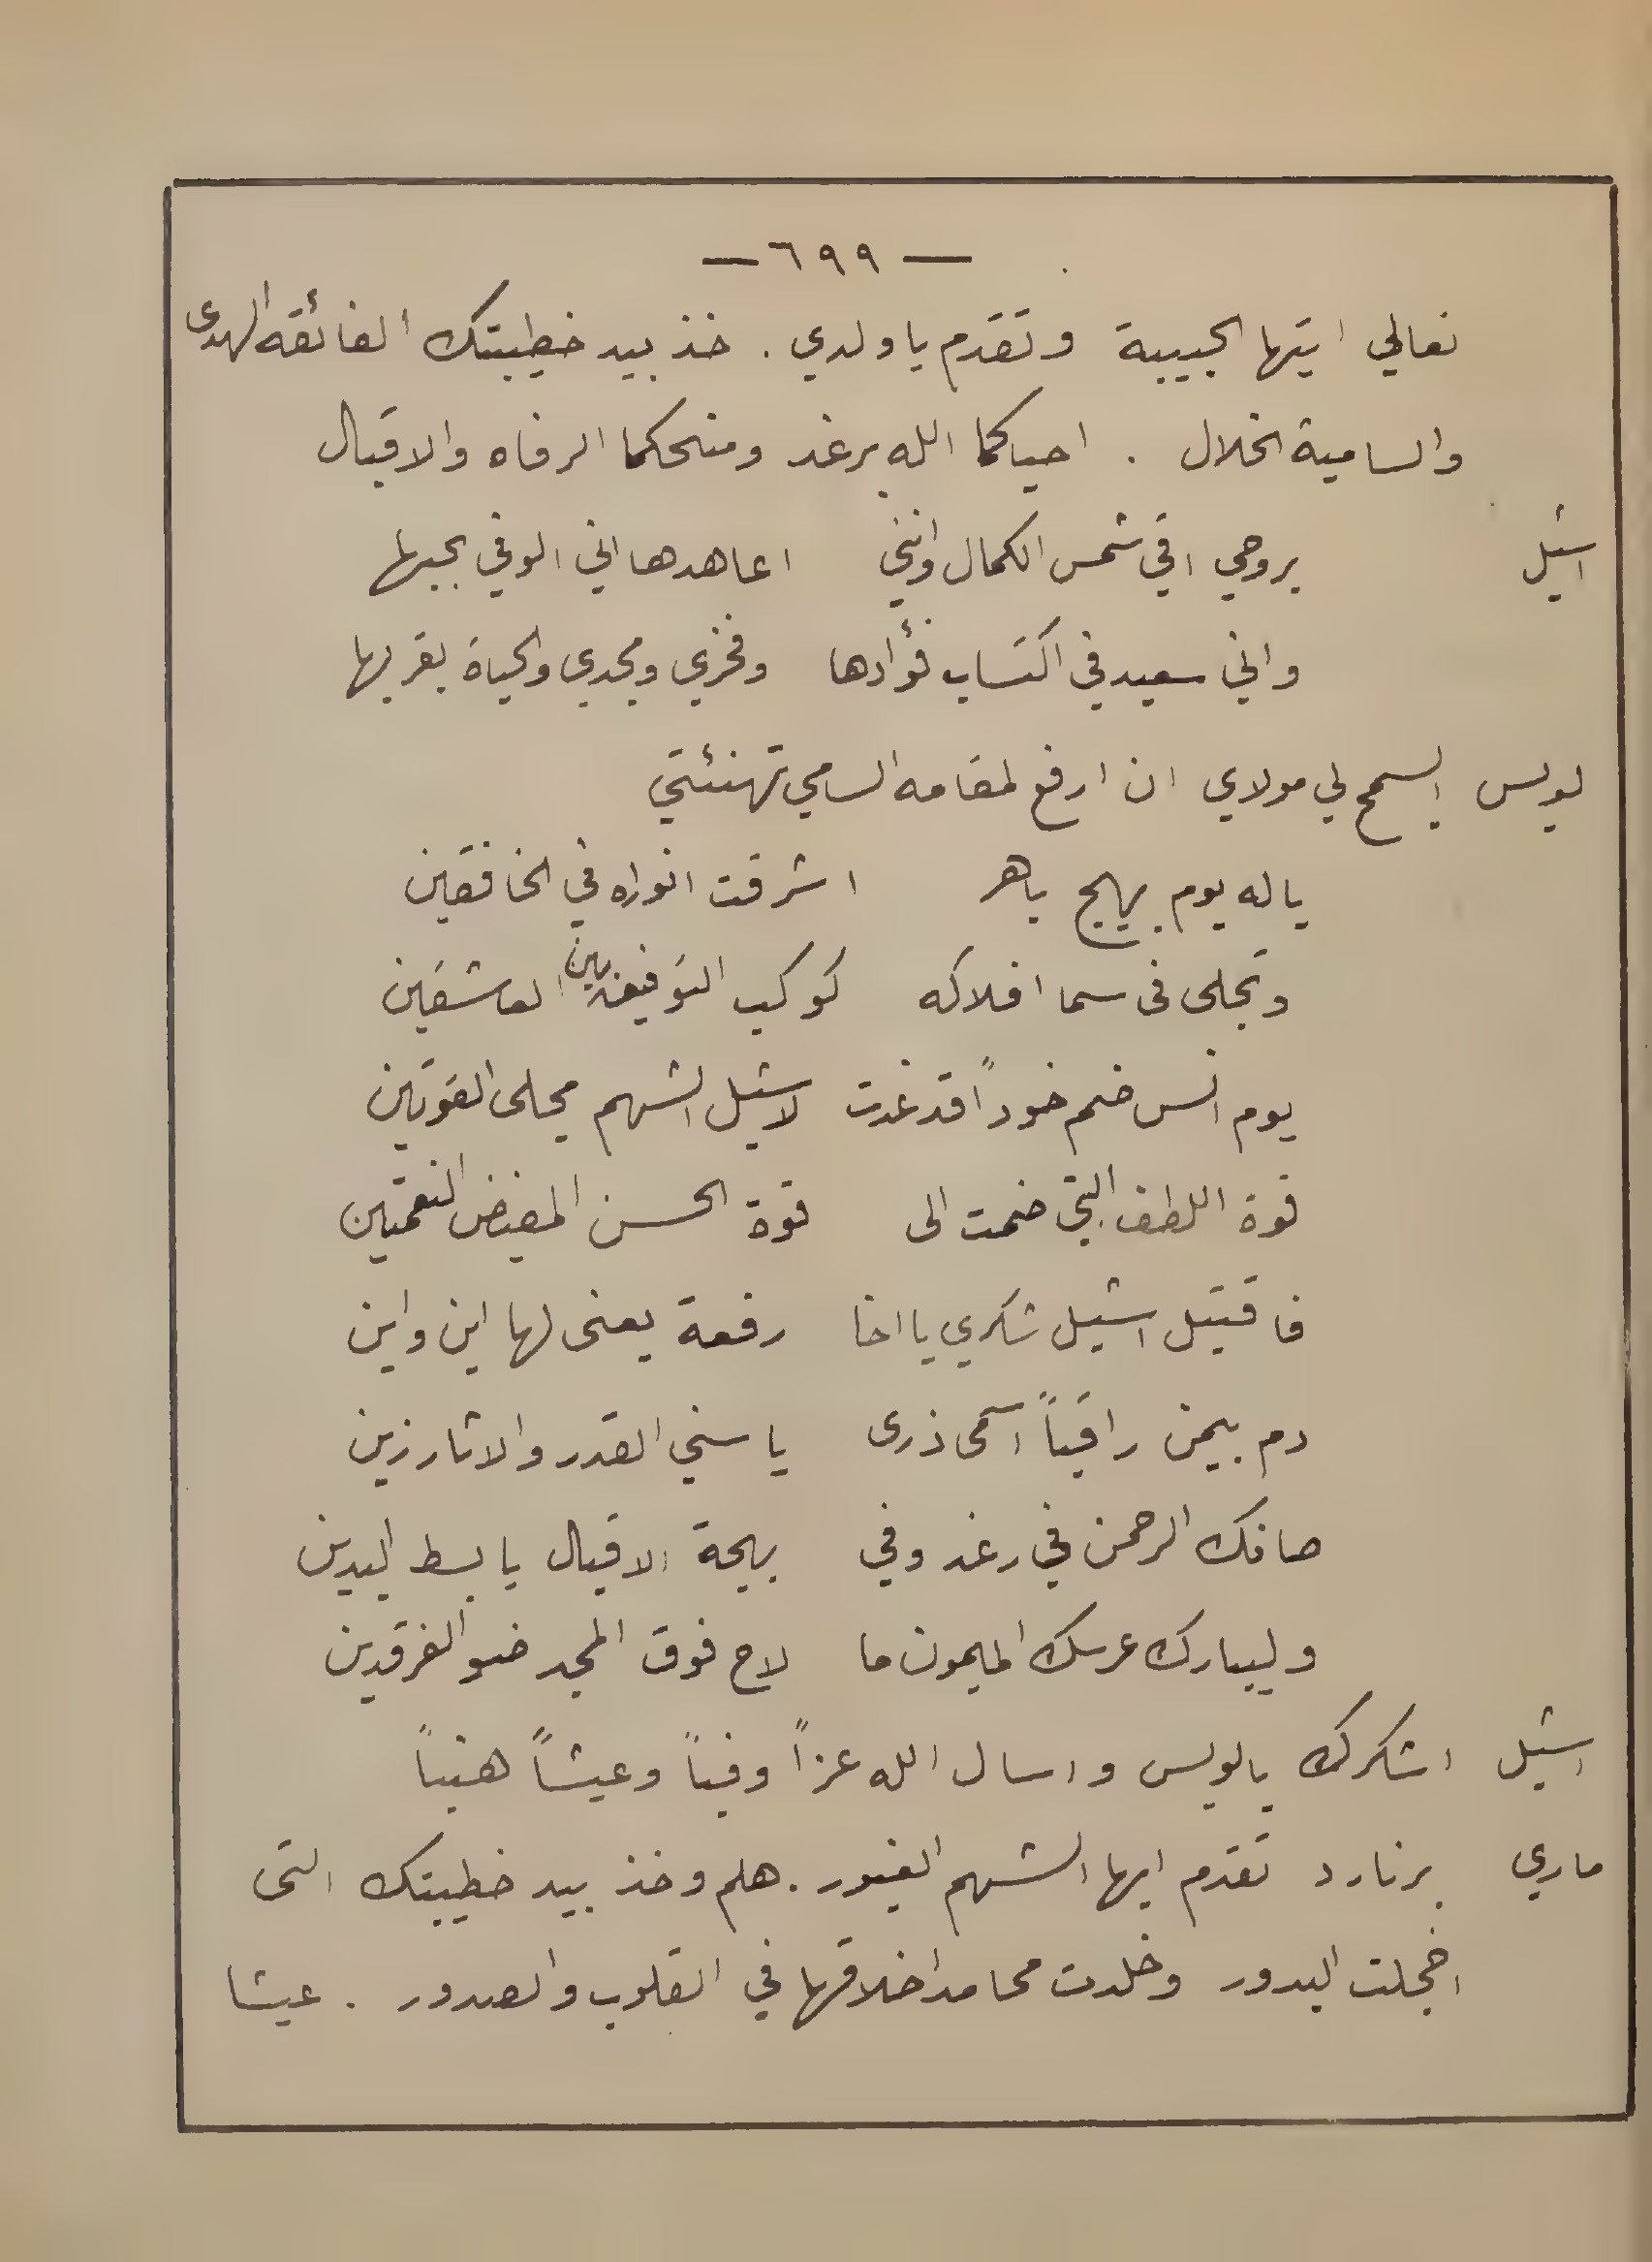 — ٦٩٩ —
تعالي ايتها الحبيبة وتقدم يا ولدي . خذ بيد خطيبتك الفائقة الهدى
والسامية الخلال . احياكما الله برغد ومنحكما الرفاه والاقبال
اشيل بروحي افي شمس الكمال وانني اعاهدها اني الوفي بحبها
واني سعيد في اكتساب فؤادها وفخري ومجدي والحياة بقربها
لويس ايسمح لي مولاي ان ارفع لمقامه السامي تهنئتي
يا له يوم بهيج باهر اشرقت انواره في الخافقين
وتجلى فى سما افلاكه كوكب التوفيق بين العاشقين
يوم انس ضم خوداً قد غدت لاشيل الشهم مجلى القوتين
قوة اللطف التي ضمت الى قوة الحسن المفيض النعمتين
فاقتبل اشيل شكري يا اخا رفعة يعنى لها اين واين
دم بيمن راقياً اسمى ذرى يا سني القدر والاثار زين
صانك الرحمن في رغد وفي بهجة الاقبال يا بسط اليدين
وليبارك عرسك الميمون ما لاح فوق المجد ضوء الفرقدين
اشيل اشكرك يالويس واسال الله عزاً وفياً وعيشاً هنياً
ماري برنارد تقدم ايها الشهم الغيور . هلم وخذ بيد خطيبتك التى
اخجلت البدور وخلدت محامد اخلاقها في القلوب والصدور . عيشا